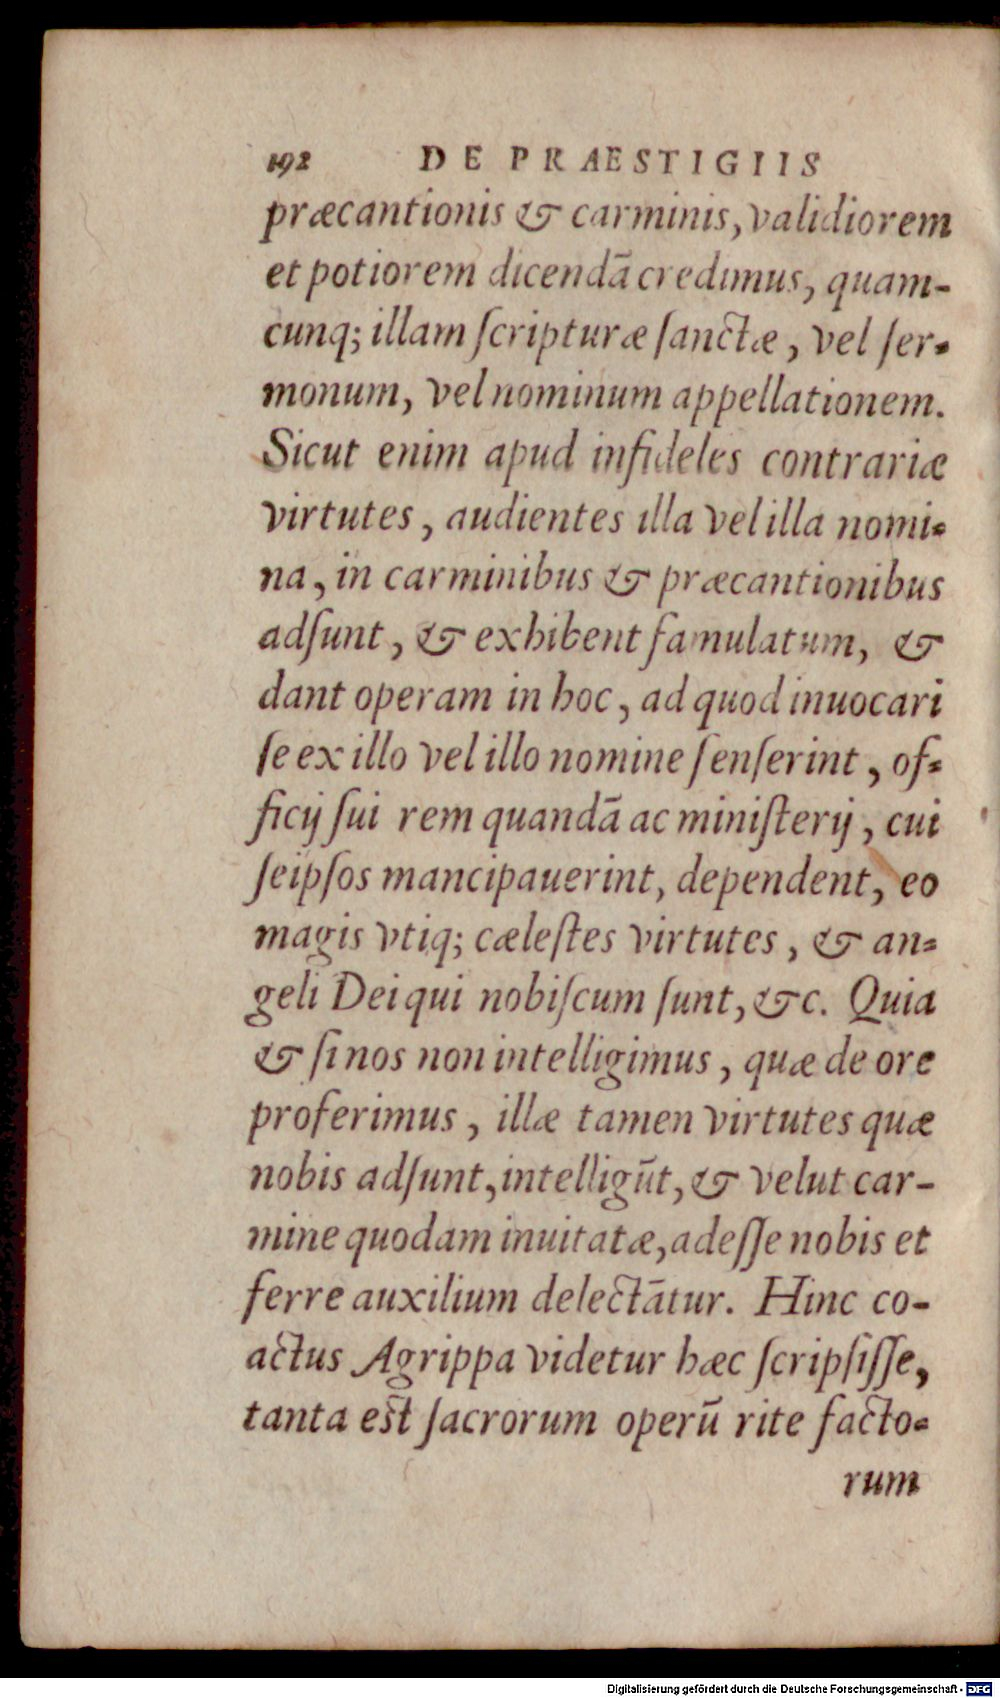 192 DE PRAESTIGIIS
præcantionis & carminis, validiorem
et potiorem dicendā credimus, quam-
cunq; illam ſcripturæ ſanctæ, vel ſer-
monum, vel nominum appellationem.
Sicut enim apud infideles contrariæ
virtutes, audientes illa vel illa nomi-
na, in carminibus & præcantionibus
adſunt, & exhibent famulatum, &
dant operam in hoc, ad quod inuocari
ſe ex illo vel illo nomine ſenſerint, of-
ficij ſui rem quandā ac miniſterij, cui
ſeipſos mancipauerint, dependent, eo
magis vtiq; cæleſtes virtutes, & an-
geli Dei qui nobiſcum ſunt, &c. Quia
& ſi nos non intelligimus, quæ de ore
proferimus, illæ tamen virtutes quæ
nobis adſunt, intelligūt, & velut car-
mine quodam inuitatæ, adeſſe nobis et
ferre auxilium delectātur. Hinc co-
actus Agrippa videtur hæc ſcripſiſſe,
tanta eſt ſacrorum operū rite facto-
rum
Digitalisierung gefördert durch die Deutsche Forschungsgemeinschaft - DFG